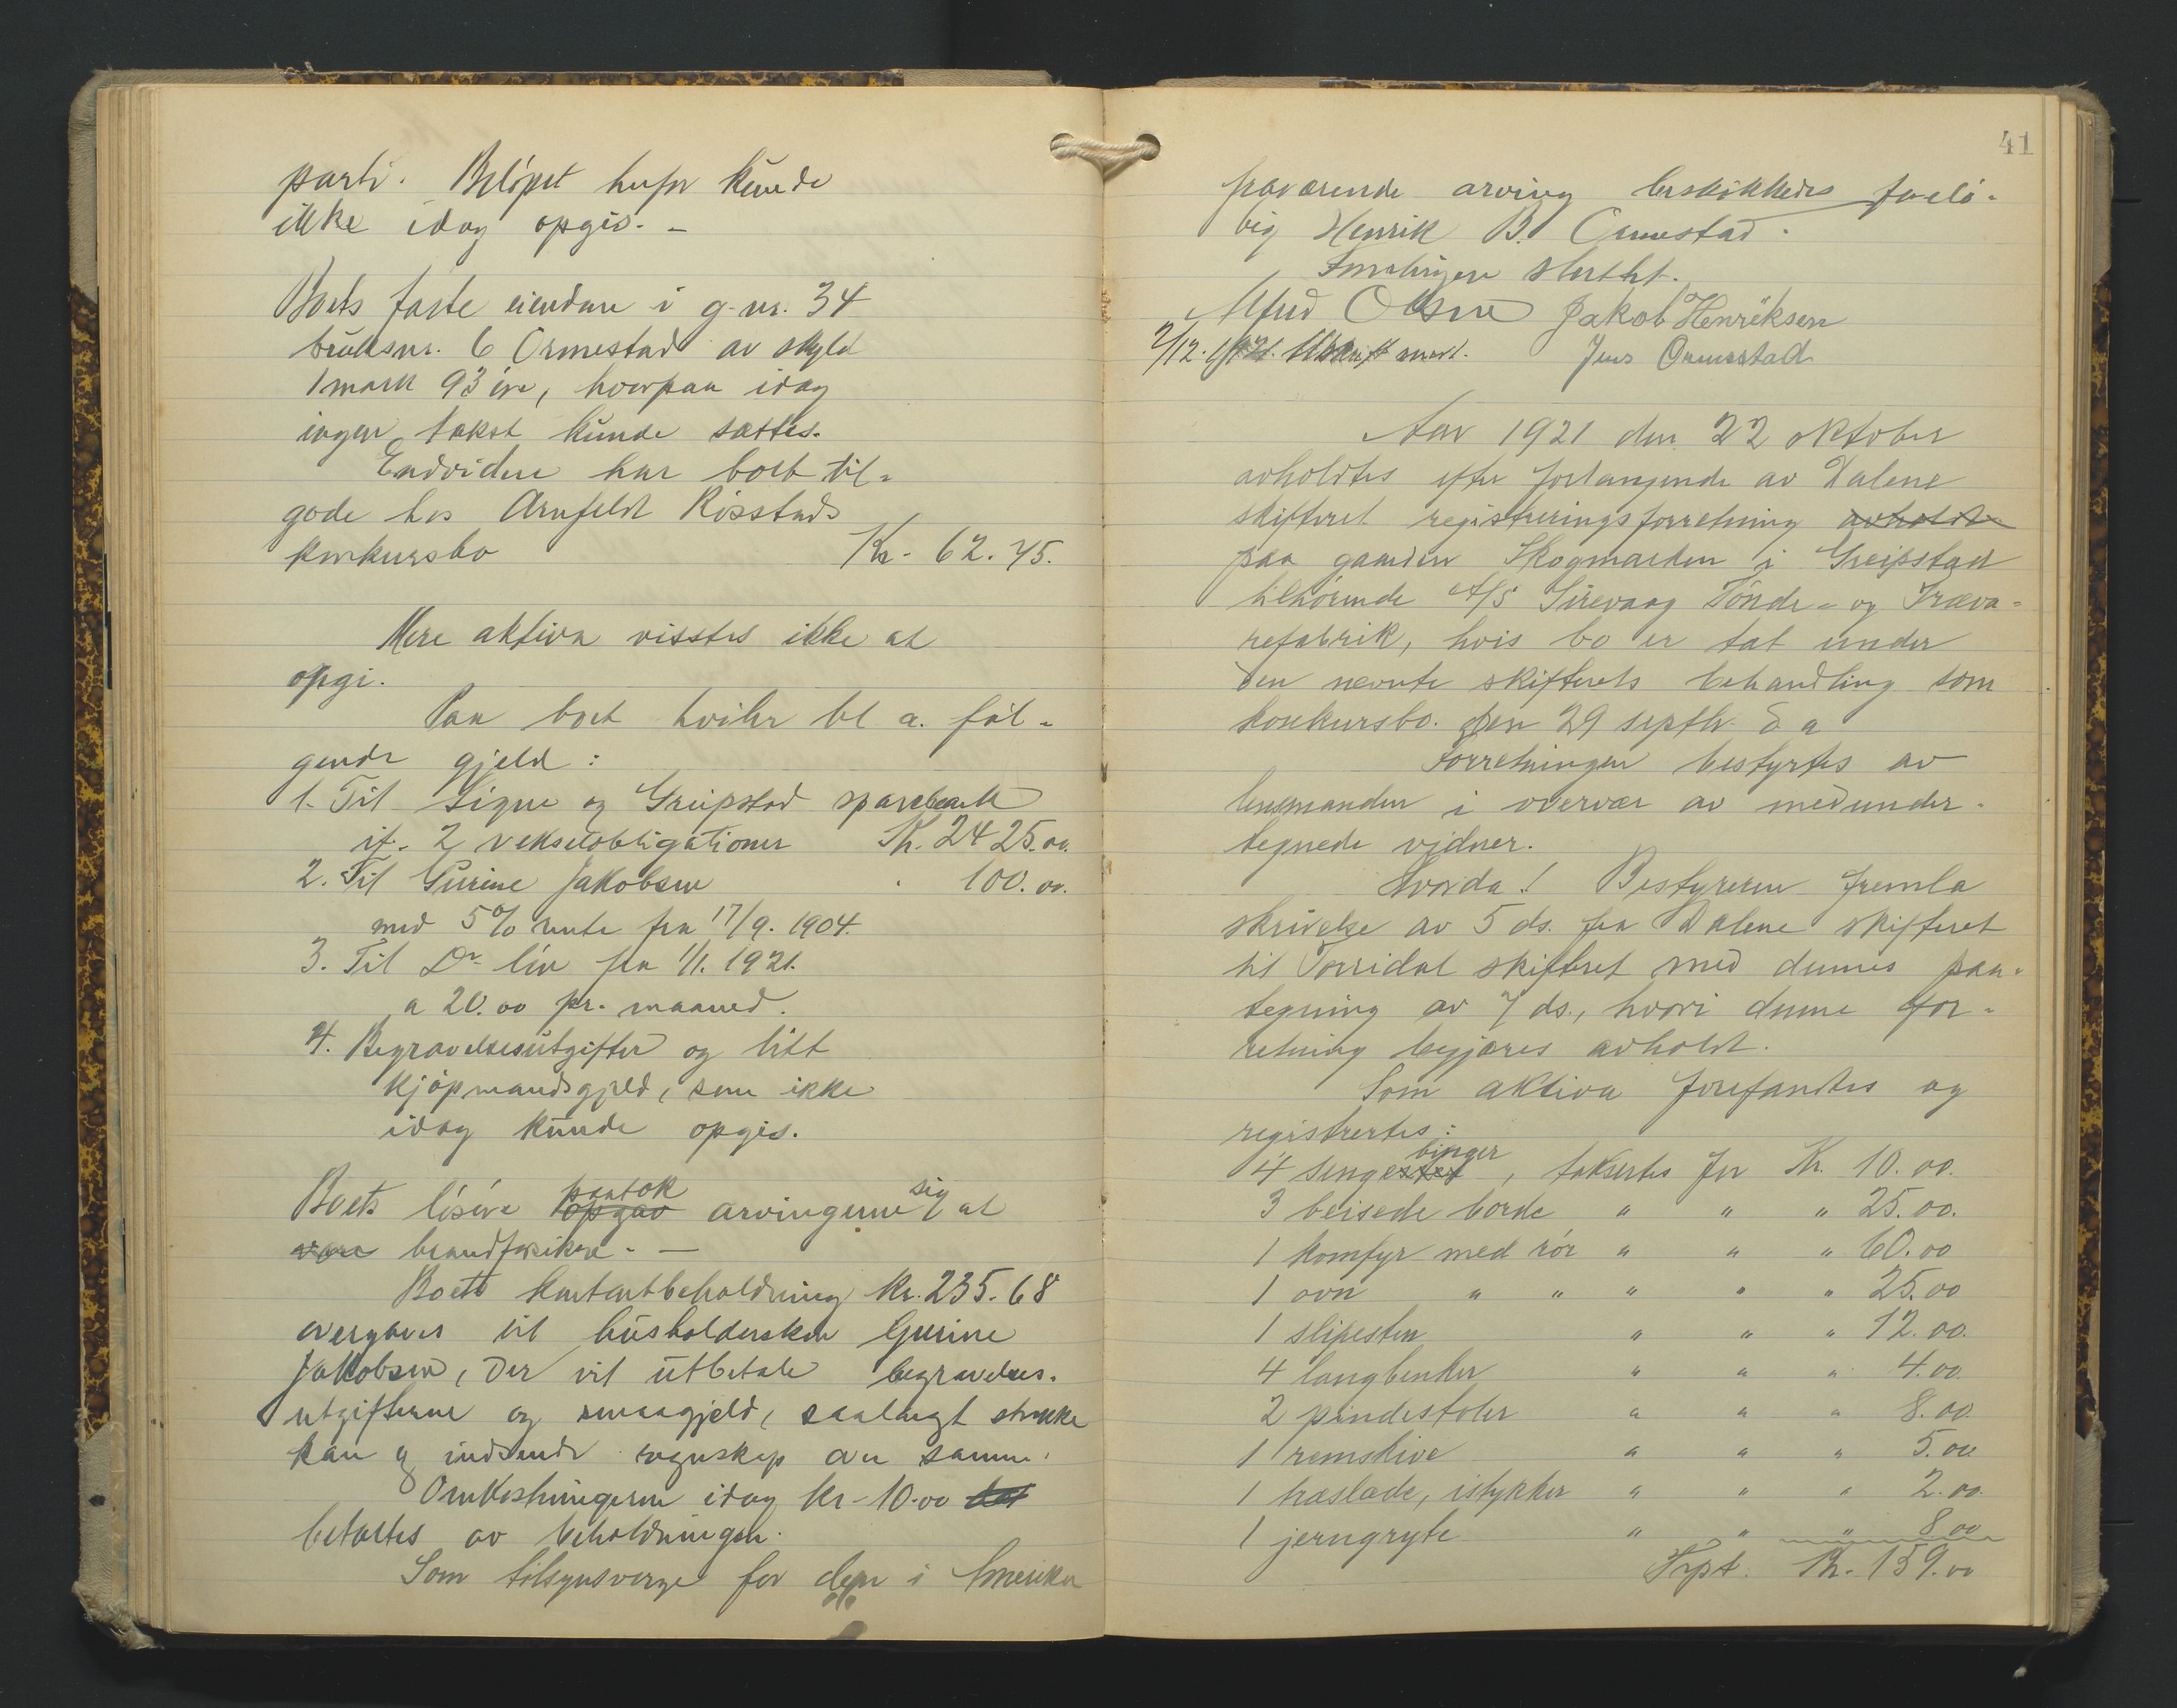 parti. Beløpet herfor kunde
ikke idag opgis. -
Boets faste eiendom i g-nr. 34
bruksnr. 6 Ormestad av skyld
1 mark 93 øre, hvorpaa idag
ingen takst kunde sættes.
Endvidere har boet til-
gode hos Arnfeldt Rosstads
konkursbo Kr. 62.45.
Mere aktiva visstes ikke at
opgi.
Paa boet hviler bl a. føl-
gende gjeld:
1. Til Søgne og Greipstad sparebank
if. 2 vekselobligationer Kr. 2425.00.
2. Til Gurine Jakobsen " 100.00.
med 5% rente fra 17/9. 1904.
3. Til Do løn fra 1/1. 1921.
a 20.00 pr. maaned.
4. Begravelsesutgifter og litt
kjøpmandsgjeld, som ikke
idag kunde opgis.
Boets løsøre opgav paatok arvingerne sig at
være brandforsikre. -
Boets kontantbeholdning kr. 235.68
overgaves til husholdersken Gurine
Jakobsen, der vil utbetale begravelses-
utgifterne og smaagjeld, saalangt strække
kan og indsende regnskap over samme.
Omkostningerne idag kr. 10.00
betaltes av beholdningen.
Som tilsynsverge for den i Amerika
41
fraværende arving beskikkedes forelø-
big Henrik B. Ormestad.
Forretningen sluttet.
Alfred Olsen Jakob Henriksen
2/12. 1921. Utskrift sendt. Jens Ormestad
Aar 1921 den 22 oktober
avholdtes efter forlangende av Dalene
skifteret registreringsforretning avholdt
paa gaarden Skogmarken i Greipstad
tilhørende A/S Sirevaag Tønde- og Træva-
refabrik, hvis bo er tat under
den nævnte skifterets behandling som
konkursbo. den 29 septbr. d. a
Forretningen bestyrtes av
lensmanden i overvær av medunder-
tegnede vidner.
Hvorda! Bestyreren fremla
skrivelse av 5 ds. fra Dalene skifteret
til Torridal skifteret med dennes paa-
tegning av 7 ds., hvori denne for-
retning begjæres avholdt.
Som aktiva forefandtes og
registrertes:
4 sengebinger, taksertes for Kr. 10.00.
3 beisede borde " " " 25.00.
1 komfyr med rør " " " 60.00
1 ovn " " " " " 25.00
1 slipesten " " " 12.00.
4 langbenker " " " 4.00.
2 pindestoler " " " 8.00.
1 remskive " " " 5.00
1 træslæde, istykker " " " 2.00.
1 jerngryte " " " 8.00
Trpt. Kr. 159.00